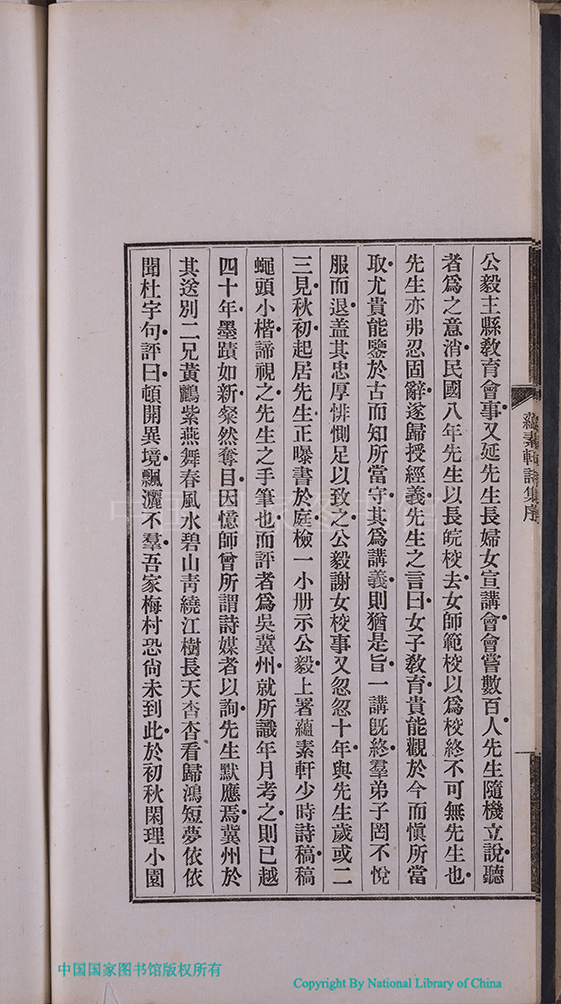 蘊素軒詩集序
公毅主縣敎育會事又延先生長婦女宣講會會嘗數百人先生隨機立說聽
者爲之意消民國八年先生以長皖校去女師範校以爲校終不可無先生也
先生亦弗忍固辭遂歸授經義先生之言曰女子敎育貴能觀於今而愼所當
取尤貴能鑒於古而知所當守其爲講義則猶是旨一講旣終羣弟子罔不悅
服而退盖其忠厚悱惻足以致之公毅謝女校事又忽忽十年與先生歲或二
三見秋初起居先生正曝書於庭檢一小册示公毅上署蘊素軒少時詩稿稿
蠅頭小楷諦視之先生之手筆也而評者爲吳冀州就所識年月考之則已越
四十年墨蹟如新粲然奪目因憶師曾所謂詩媒者以詢先生默應焉冀州於
其送別二兄黃鸝紫燕舞春風水碧山靑繞江樹長天杳杳看歸鴻短夢依依
聞杜宇句評曰頓開異境飄灑不羣吾家梅村恐尙未到此於初秋閑理小園
中国国家图书馆版权所有
Copyright By National Library of China